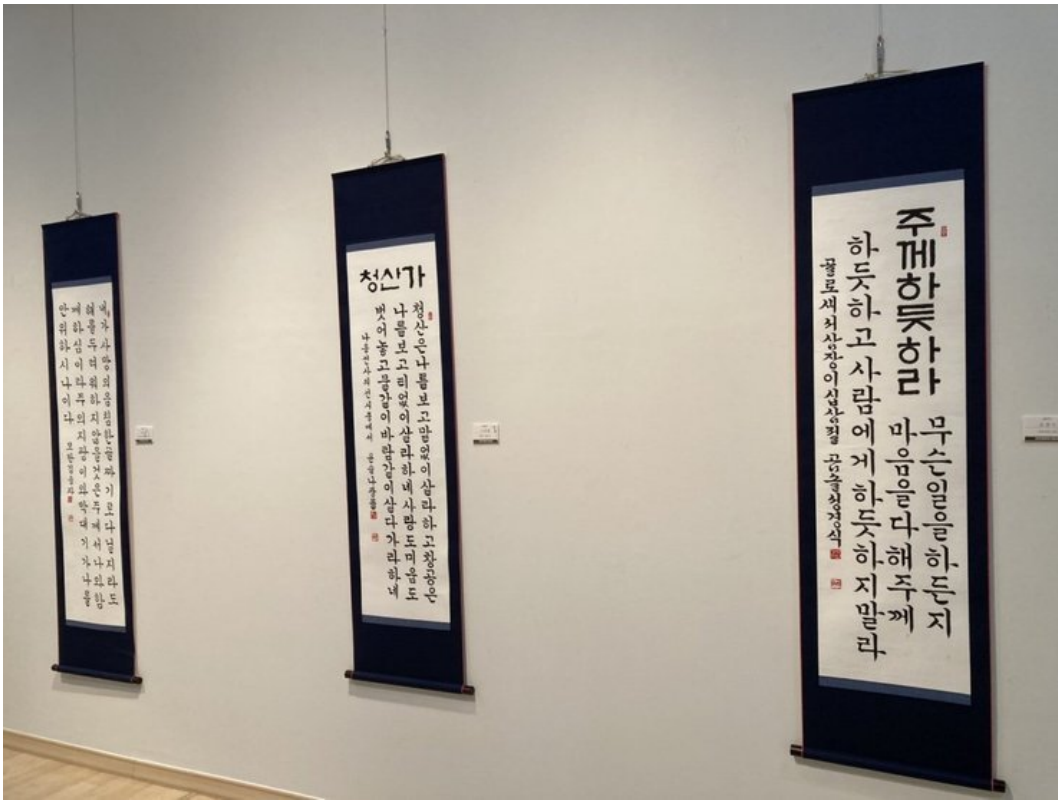 내가사망의음침한골짜기로다닐지라도
해를두려워하지않을것은주께서나와함
께하심이라주의지팡이와막대기가나를
안위하시나이다
청산가
청산은나를보고말없이살라하고창공은
나를보고티없이살라하네사랑도미움도
벗어놓고물같이바람같이살다가라하네
나옹선사의선시중에서
주께하듯하라
무슨일을하든지
마음을다해주께
하듯하고사람에게하듯하지말라
골로새서삼장이십삼절